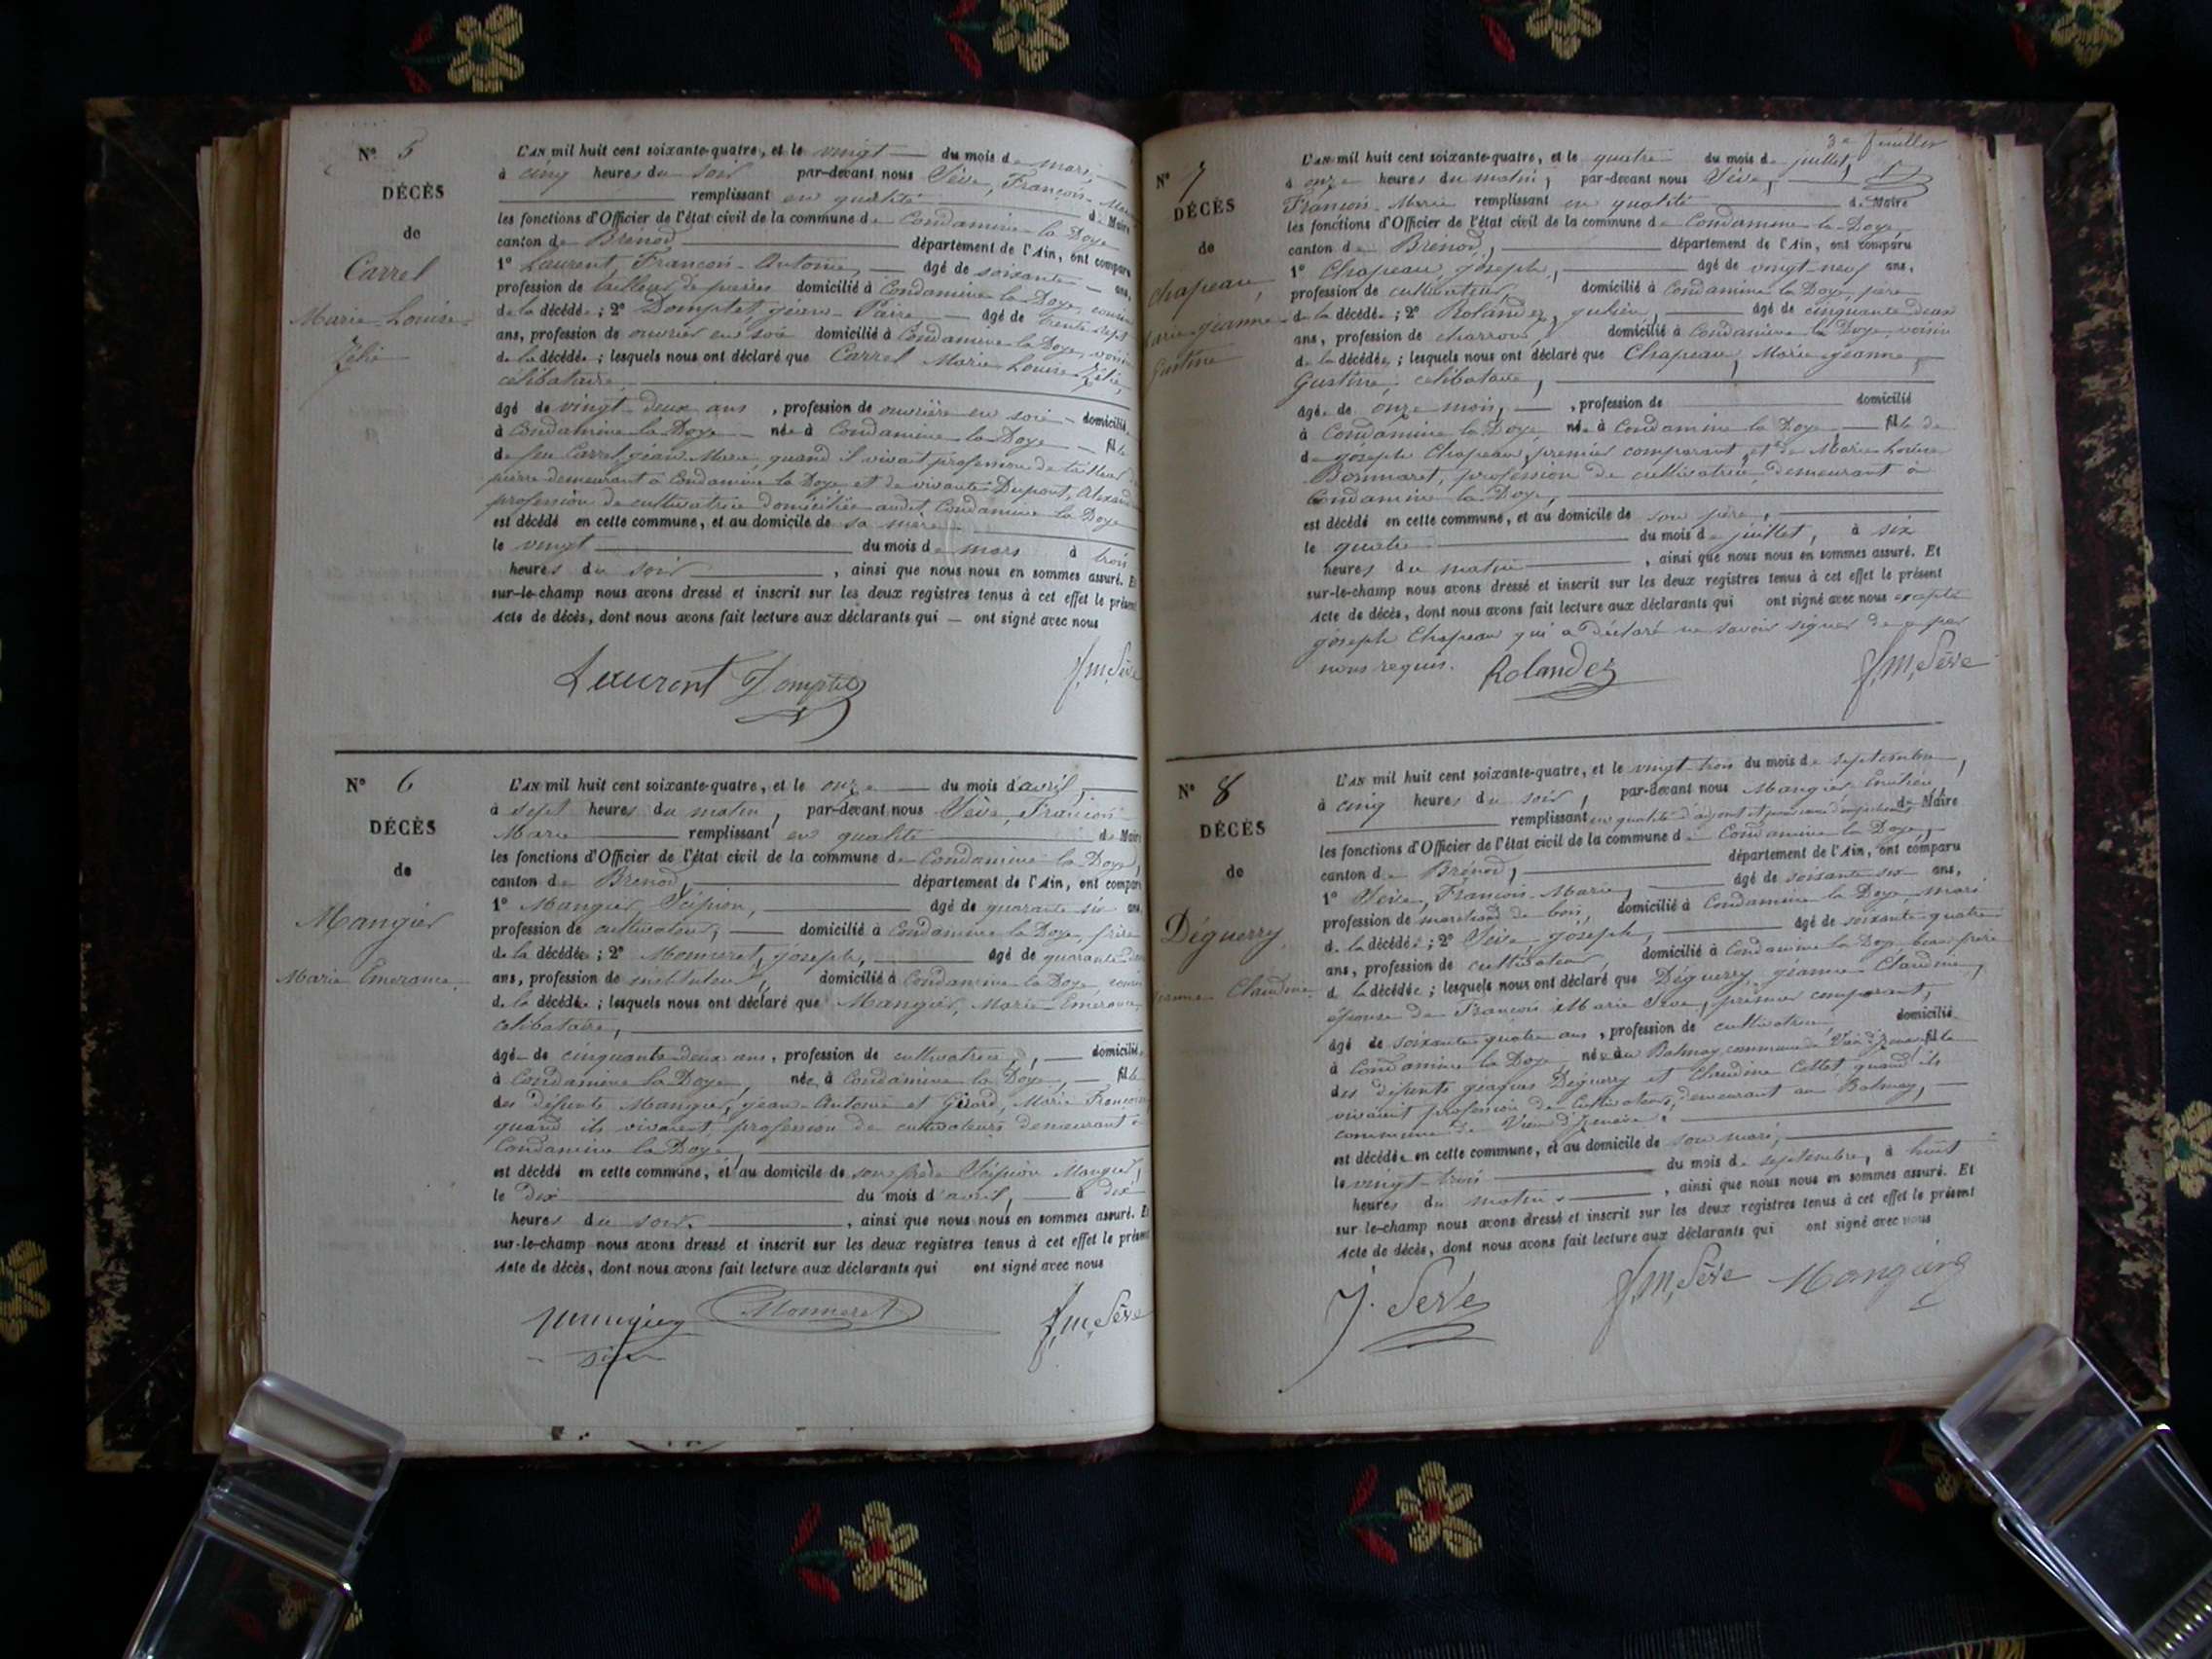 N° 5
DÉCÈS
de
Carrel
Marie Louise
Zélie
L'AN mil huit cent soixante-quatre, et le vingt du mois de mars,
à cinq heures du soir par-devant nous Sève, François-Marie
remplissant en qualité de Maire
les fonctions d'Officier de l'état civil de la commune de Condamine la Doye
canton de Brénod département de l'Ain, ont comparu
1° Laurent, François-Antoine, âgé de soixante ans,
profession de tailleur de pierres domicilié à Condamine la Doye, cousin
de la décédée ; 2° Domptet, jean-Pierre âgé de trente sept
ans, profession de ouvrier en soie domicilié à Condamine la Doye, voisin
de la décédée ; lesquels nous ont déclaré que Carrel Marie Louise Zélie,
célibataire
âgé de vingt-deux ans, profession de ouvrière en soie domicilié
à Condamine la Doye née à Condamine la Doye fille
de feu Carrel, jean Marie quand il vivait profession de tailleur de
pierre demeurant à Condamine la Doye et de vivante Dupont,
profession de cultivatrice domiciliée audit Condamine la Doye
est décédé en cette commune, et au domicile de sa mère
le vingt du mois de mars à trois
heures du soir, ainsi que nous nous en sommes assuré. Et
sur-le-champ nous avons dressé et inscrit sur les deux registres tenus à cet effet le présent
Acte de décès, dont nous avons fait lecture aux déclarants qui ont signé avec nous
Laurent Domptet f,m, Sève
N° 6
DÉCÈS
de
Mangier
Marie Emerance
L'AN mil huit cent soixante-quatre, et le onze du mois d'avril,
à sept heures du matin, par-devant nous Sève, François
Marie remplissant en qualité de Maire
les fonctions d'Officier de l'état civil de la commune de Condamine la Doye,
canton de Brénod, département de l'Ain, ont comparu
1° Mangier, Scipion, âgé de quarante six ans,
profession de cultivateur, domicilié à Condamine la Doye, frère
de la décédée ; 2° Monneret, joseph, âgé de quarante
ans, profession de instituteur, domicilié à Condamine la Doye, voisin
de la décédée ; lesquels nous ont déclaré que Mangier, Marie Emerance,
célibataire,
âgée de cinquante deux ans, profession de cultivatrice, domiciliée
à Condamine la Doye, née à Condamine la Doye, fille
des défunts Mangier, jean-Antoine et Girard, Marie Françoise
quand ils vivaient, profession de cultivateurs demeurant à
Condamine la Doye,
est décédé en cette commune, et au domicile de son frère Scipion Mangier,
le dix du mois d'avril, à dix
heures du soir, ainsi que nous nous en sommes assuré. Et
sur-le-champ nous avons dressé et inscrit sur les deux registres tenus à cet effet le présent
Acte de décès, dont nous avons fait lecture aux déclarants qui ont signé avec nous
Mangier Monneret f,m, Sève
3e feuillet
N° 7
DÉCÈS
de
Chapeau,
Marie-jeanne
Gustine
L'AN mil huit cent soixante-quatre, et le quatre du mois de juillet,
à onze heures du matin, par-devant nous Sève,
François-Marie remplissant en qualité de Maire
les fonctions d'Officier de l'état civil de la commune de Condamine la Doye
canton de Brénod, département de l'Ain, ont comparu
1° Chapeau, joseph, âgé de vingt-neuf ans,
profession de cultivateur, domicilié à Condamine la Doye, père
de la décédée ; 2° Rolandez, julien, âgé de cinquante deux
ans, profession de charron, domicilié à Condamine la Doye, voisin
de la décédée ; lesquels nous ont déclaré que Chapeau, Marie-jeanne,
Gustine, célibataire,
âgée de onze mois, profession de domicilié
à Condamine la Doye, née à Condamine la Doye, fille de
de joseph Chapeau, premier comparant, et de Marie Louise
Bonmaret, profession de cultivatrice, demeurant à
Condamine la Doye,
est décédé en cette commune, et au domicile de son père,
le quatre du mois de juillet, à six
heures du matin, ainsi que nous nous en sommes assuré. Et
sur-le-champ nous avons dressé et inscrit sur les deux registres tenus à cet effet le présent
Acte de décès, dont nous avons fait lecture aux déclarants qui ont signé avec nous excepté
joseph Chapeau qui a déclaré ne savoir signer de ce par
nous requis. Rolandez f,m, Sève
N° 8
DÉCÈS
de
Déguerry
jeanne Claudine
L'AN mil huit cent soixante-quatre, et le vingt-trois du mois de septembre,
à cinq heures du soir, par-devant nous Mangier
remplissant en qualité d'adjoint de Maire
les fonctions d'Officier de l'état civil de la commune de Condamine la Doye,
canton de Brénod, département de l'Ain, ont comparu
1° Sève, François-Marie, âgé de soixante six ans,
profession de marchand de bois, domicilié à Condamine la Doye, mari
de la décédée ; 2° Sève joseph, âgé de soixante-quatre
ans, profession de cultivateur, domicilié à Condamine la Doye beau-frère
de la décédée ; lesquels nous ont déclaré que Déguerry jeanne-Claudine,
épouse de François Marie Sève, premier comparant,
âgé de soixante quatre ans, profession de cultivatrice, domiciliée
à Condamine la Doye née au Balmay commune de Vieu d'Izenave fille
des défunts jacques Déguerry et Claudine Collet quand ils
vivaient profession de cultivateurs, demeurant au Balmay,
commune de Vieu d'Izenave.
est décédée en cette commune, et au domicile de son mari,
le vingt-trois du mois de septembre, à huit
heures du matin, ainsi que nous nous en sommes assuré. Et
sur le-champ nous avons dressé et inscrit sur les deux registres tenus à cet effet le présent
Acte de décès, dont nous avons fait lecture aux déclarants qui ont signé avec nous
J. Seve f,m, Sève Mangier